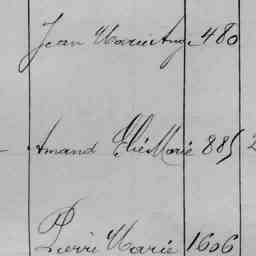 Jean Marie Ange 480
Amand Élie Marie 885 2
Pierre Marie 1606